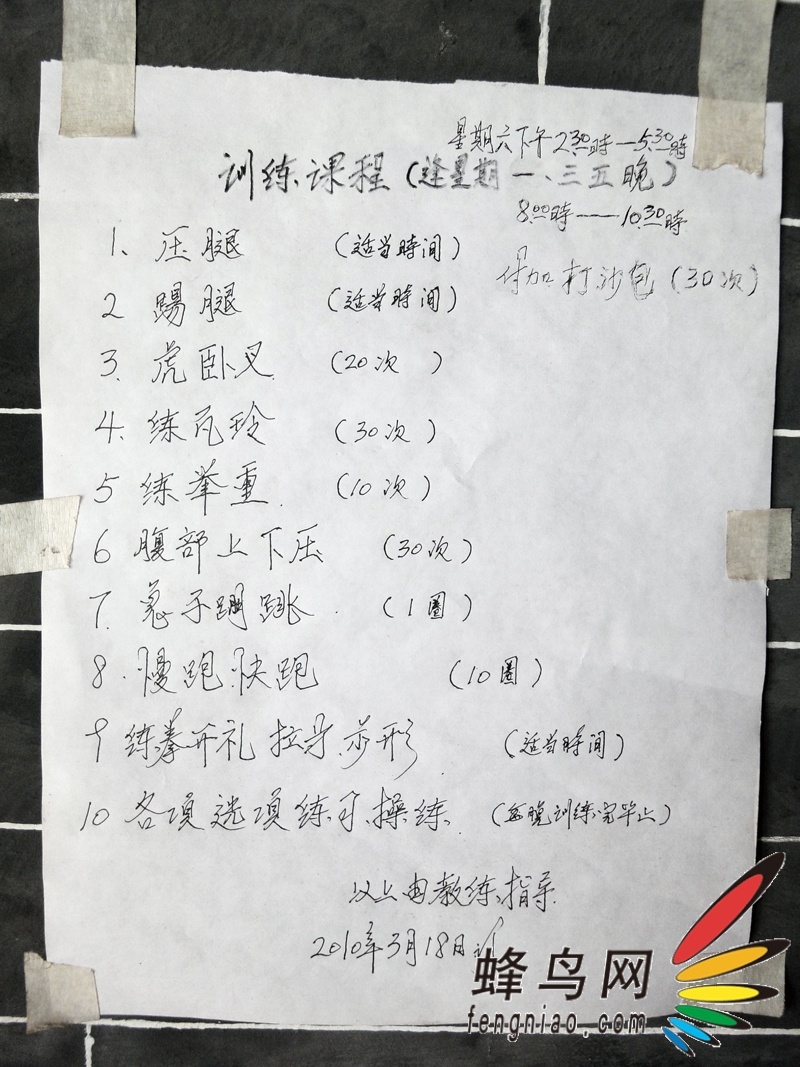 星期六下午2:30時—5:30時
训练课程(逢星期一、三五晚)
8:00時——10:30時
1、压腿 (适当時间)
付加打沙包(30次)
2 踢腿 (适当時间)
3、虎卧叉 (20次 )
4、练瓦玲 (30次)
5 练举重. (10次)
6 腹部上下压 (30次)
7、子跳. (1圈)
8.慢跑.快跑 (10圈)
9 练拳开礼 拉形. (适当時间)
10 各项选项练习.操练. (每晚训练完毕止)
以上由教练指导.
2010年3月18日
蜂鸟网
fengniao.com